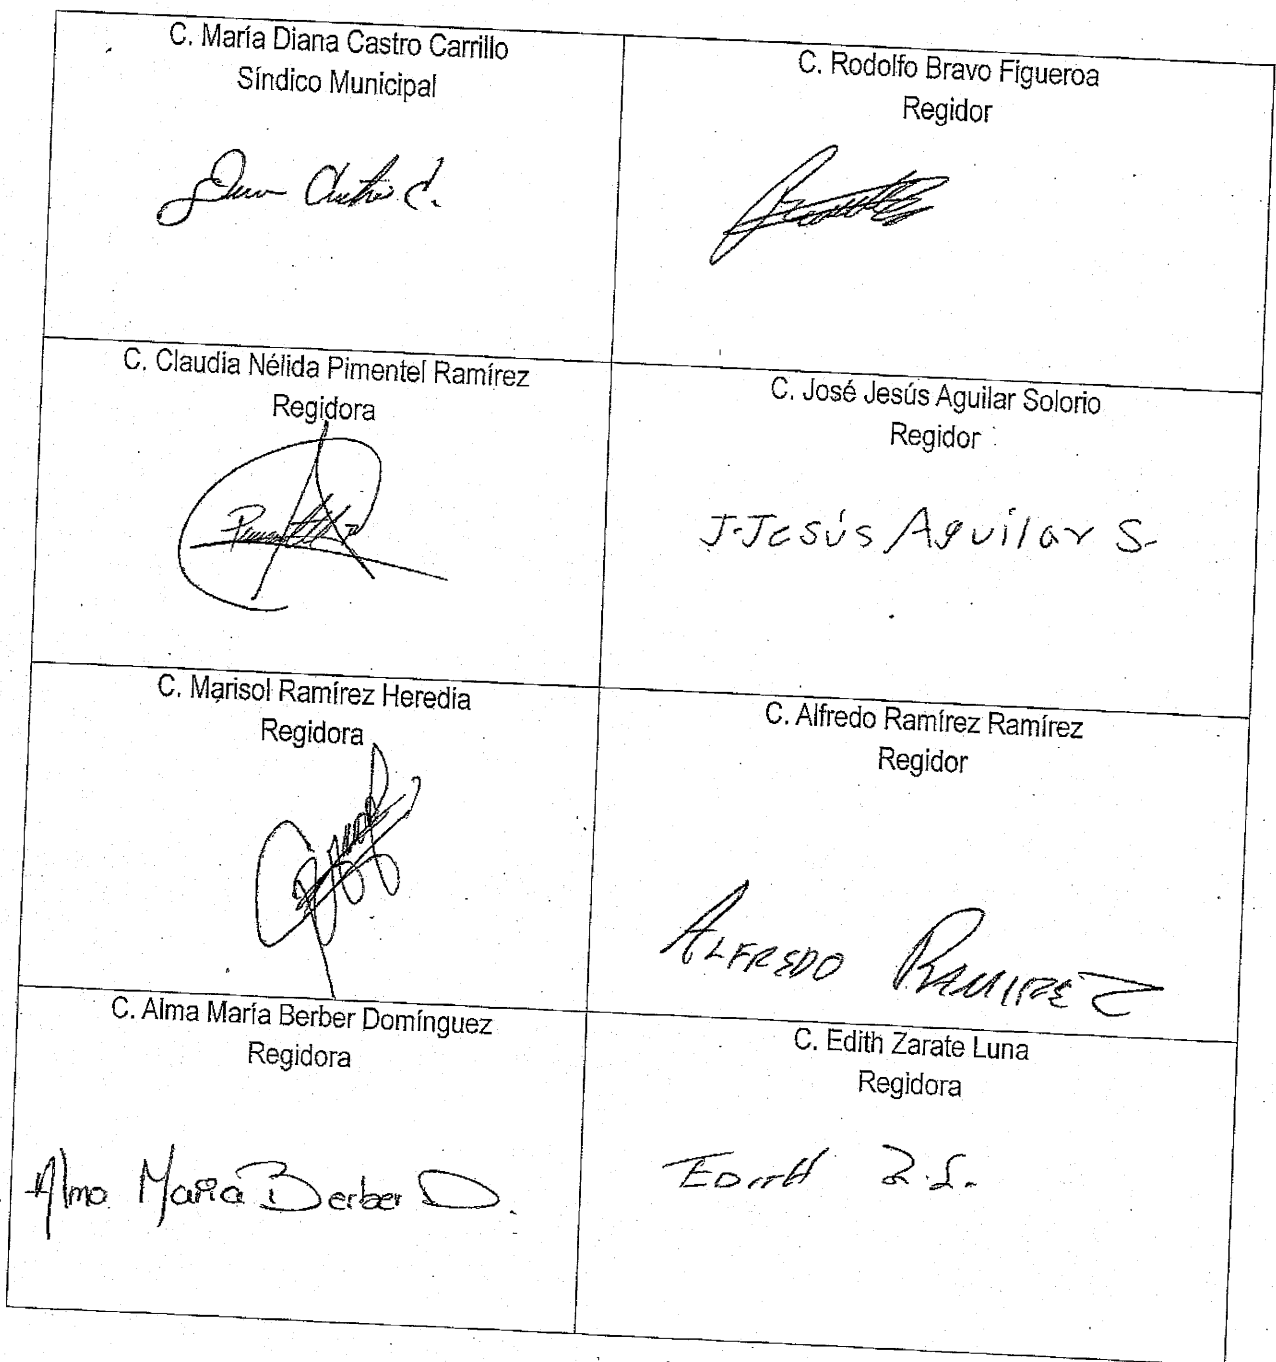 C. María Diana Castro Carrillo
Síndico Municipal
C. Rodolfo Bravo Figueroa
Regidor
C. Claudia Nélida Pimentel Ramírez
Regidora
C. José Jesús Aguilar Solorio
Regidor
J. Jesús Aguilar S.
C. Marisol Ramírez Heredia
Regidora
C. Alfredo Ramírez Ramírez
Regidor
ALFREDO RAMIREZ
C. Alma María Berber Domínguez
Regidora
Alma Maria Berber D.
C. Edith Zarate Luna
Regidora
EDITH Z.L.